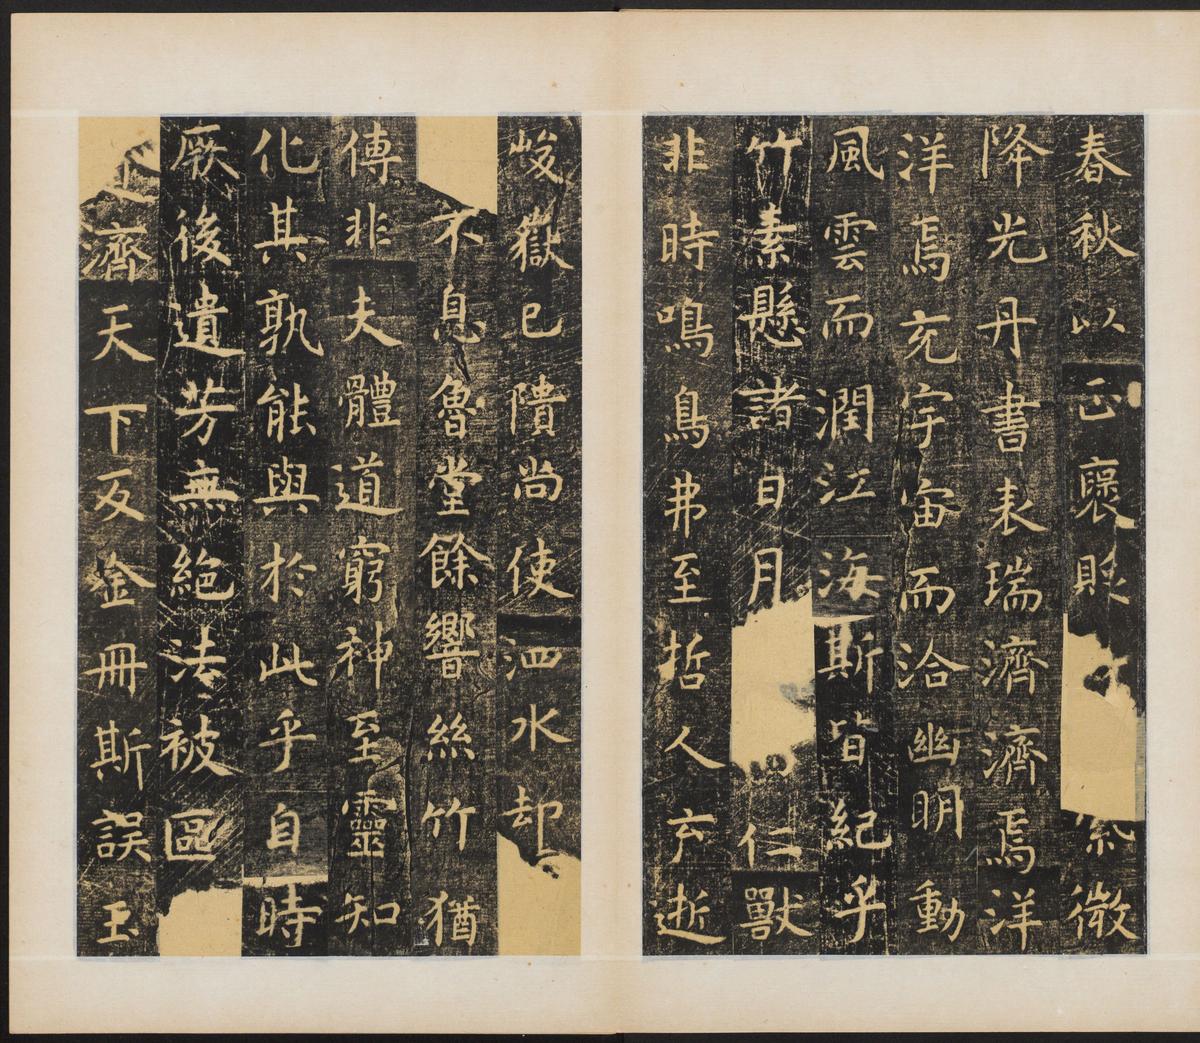 春秋以正襃貶 紫微
降光丹書表瑞濟濟焉洋
洋焉充宇宙而洽幽明動
風雲而潤江海斯皆紀乎
竹素懸諸日月 仁獸
非時鳴鳥弗至哲人云逝
峻嶽已隤尚使泗水却
不息魯堂餘響絲竹猶
傳非夫體道窮神至靈知
化其孰能與於此乎自時
厥後遺芳無絶法被區
濟天下及金冊斯誤玉